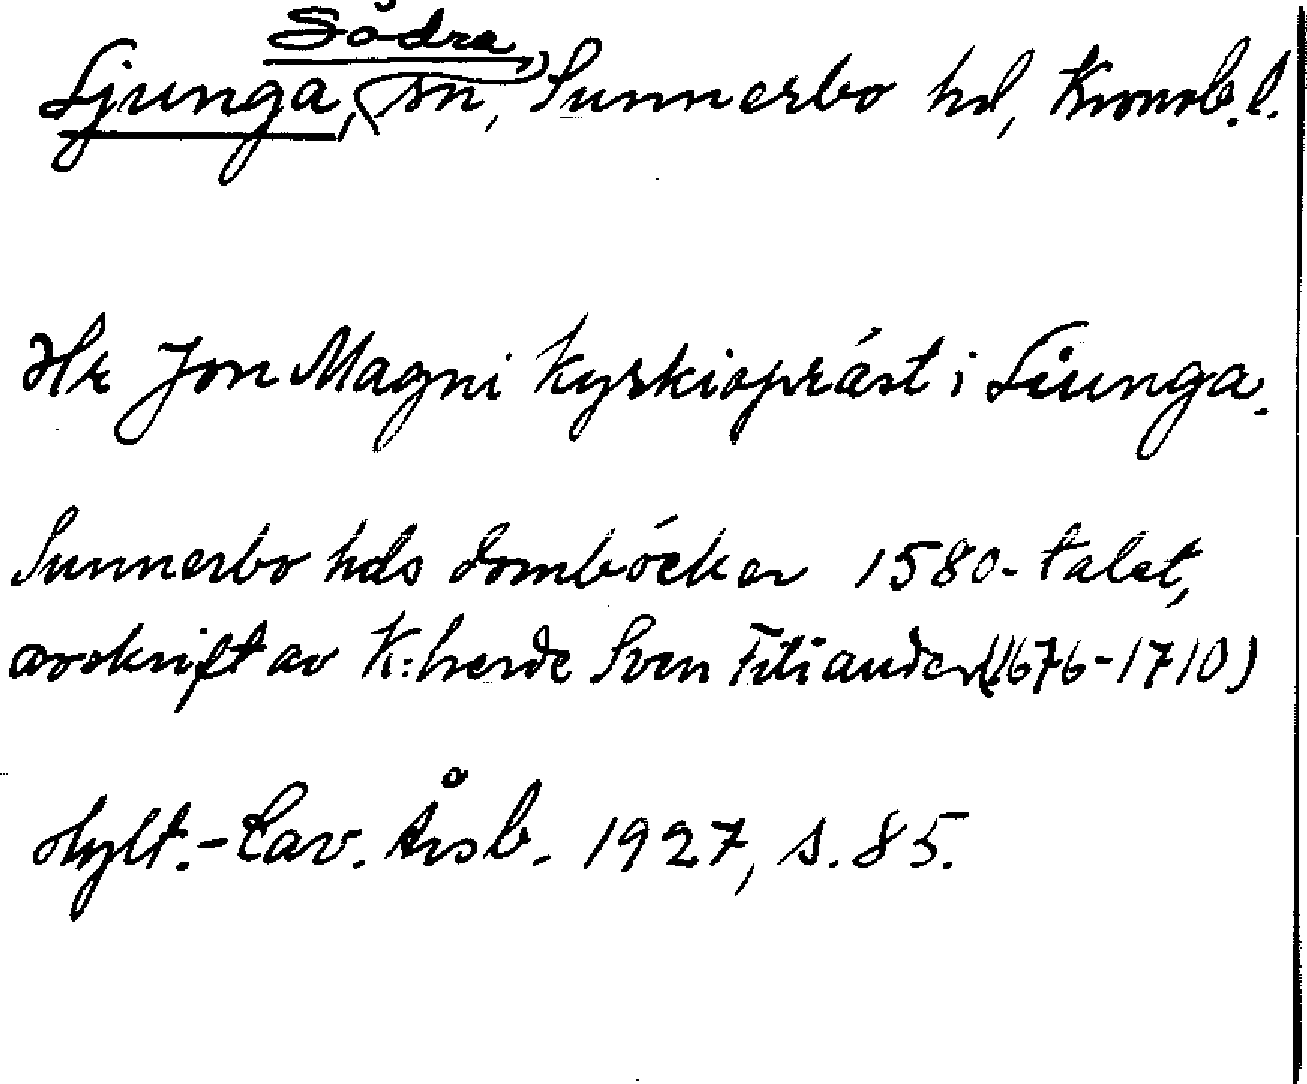 Södra
Ljunga, sn, Sunnerbo hd, Kronob. l.
Hr Jon Magni kyrkiopräst i Liunga.
Sunnerbo hds domböcker 1580-talet,
avskrift av K:herde Sven Titiander (1676-1710)
Hylt.-Cav. Årsb. 1927, s. 85.